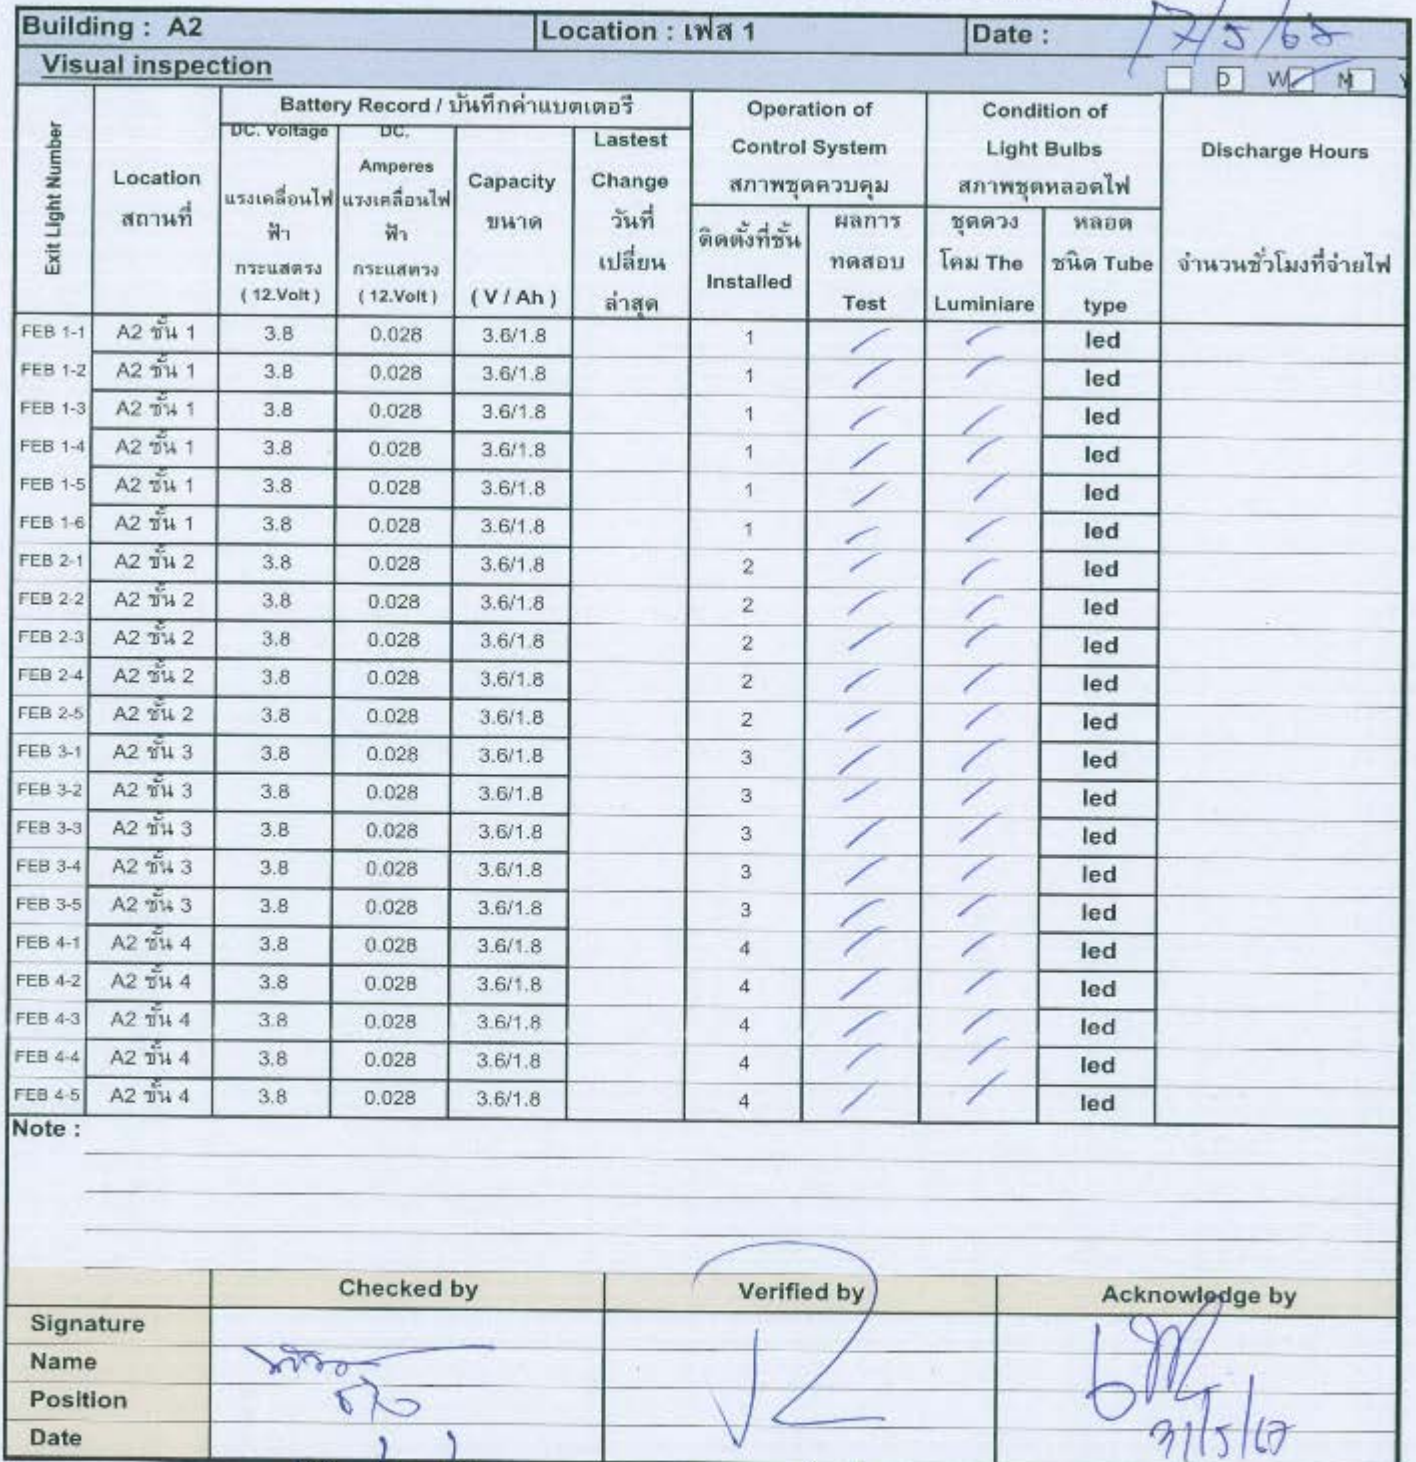 Building : A2 Location : เฟส 1 Date : 7/5/67
Visual inspection
D W M Y
Exit Light Number
Location
สถานที่
Battery Record / บันทึกค่าแบตเตอรี
DC. Voltage
แรงเคลื่อนไฟ
ฟ้า
กระแสตรง
( 12.Volt )
DC.
Amperes
แรงเคลื่อนไฟ
ฟ้า
กระแสตรง
( 12.Volt )
Capacity
ขนาด
( V / Ah )
Lastest
Change
วันที่
เปลี่ยน
ล่าสุด
Operation of
Control System
สภาพชุดควบคุม
ติดตั้งที่ชั้น
Installed
ผลการ
ทดสอบ
Test
Condition of
Light Bulbs
สภาพชุดหลอดไฟ
ชุดดวง
โคม The
Luminiare
หลอด
ชนิด Tube
type
Discharge Hours
จำนวนชั่วโมงที่จ่ายไฟ
FEB 1-1 A2 ชั้น 1 3.8 0.028 3.6/1.8 1 / / led
FEB 1-2 A2 ชั้น 1 3.8 0.028 3.6/1.8 1 / / led
FEB 1-3 A2 ชั้น 1 3.8 0.028 3.6/1.8 1 / / led
FEB 1-4 A2 ชั้น 1 3.8 0.028 3.6/1.8 1 / / led
FEB 1-5 A2 ชั้น 1 3.8 0.028 3.6/1.8 1 / / led
FEB 1-6 A2 ชั้น 1 3.8 0.028 3.6/1.8 1 / / led
FEB 2-1 A2 ชั้น 2 3.8 0.028 3.6/1.8 2 / / led
FEB 2-2 A2 ชั้น 2 3.8 0.028 3.6/1.8 2 / / led
FEB 2-3 A2 ชั้น 2 3.8 0.028 3.6/1.8 2 / / led
FEB 2-4 A2 ชั้น 2 3.8 0.028 3.6/1.8 2 / / led
FEB 2-5 A2 ชั้น 2 3.8 0.028 3.6/1.8 2 / / led
FEB 3-1 A2 ชั้น 3 3.8 0.028 3.6/1.8 3 / / led
FEB 3-2 A2 ชั้น 3 3.8 0.028 3.6/1.8 3 / / led
FEB 3-3 A2 ชั้น 3 3.8 0.028 3.6/1.8 3 / / led
FEB 3-4 A2 ชั้น 3 3.8 0.028 3.6/1.8 3 / / led
FEB 3-5 A2 ชั้น 3 3.8 0.028 3.6/1.8 3 / / led
FEB 4-1 A2 ชั้น 4 3.8 0.028 3.6/1.8 4 / / led
FEB 4-2 A2 ชั้น 4 3.8 0.028 3.6/1.8 4 / / led
FEB 4-3 A2 ชั้น 4 3.8 0.028 3.6/1.8 4 / / led
FEB 4-4 A2 ชั้น 4 3.8 0.028 3.6/1.8 4 / / led
FEB 4-5 A2 ชั้น 4 3.8 0.028 3.6/1.8 4 / / led
Note :
Checked by Verified by Acknowledge by
Signature
Name
Position
Date 31/5/67